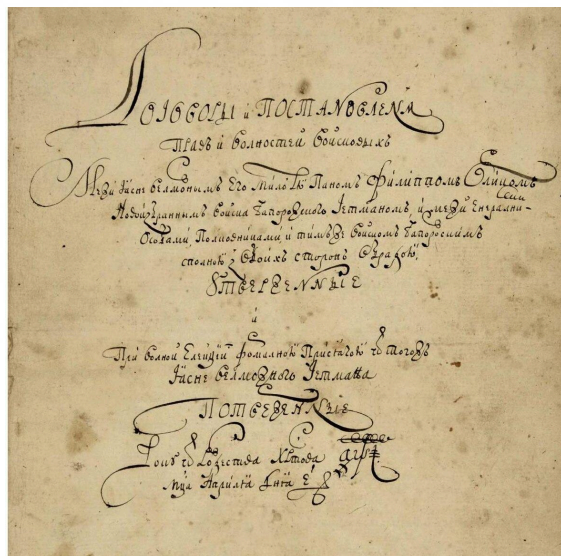 Договоры и Постановленѧ
Правъ и волностей войсковыхъ
Межи Ясне велможнымъ Его Млстю Паномъ Филиппомъ Орликомъ
Новоизбраннымъ войска Запорожского Гетманомъ, и межи Енералними
Особами, Полковниками и тимъ же войскомъ Запорозскимъ
сполною з обоихъ сторон обрадою,
Утверженные
и
При волной Елекции формалною присягою от тогожъ
Ясне велможного Гетмана
Потверженные
Року от Рождества Христова
Мца Априлѧ Днѧ Е